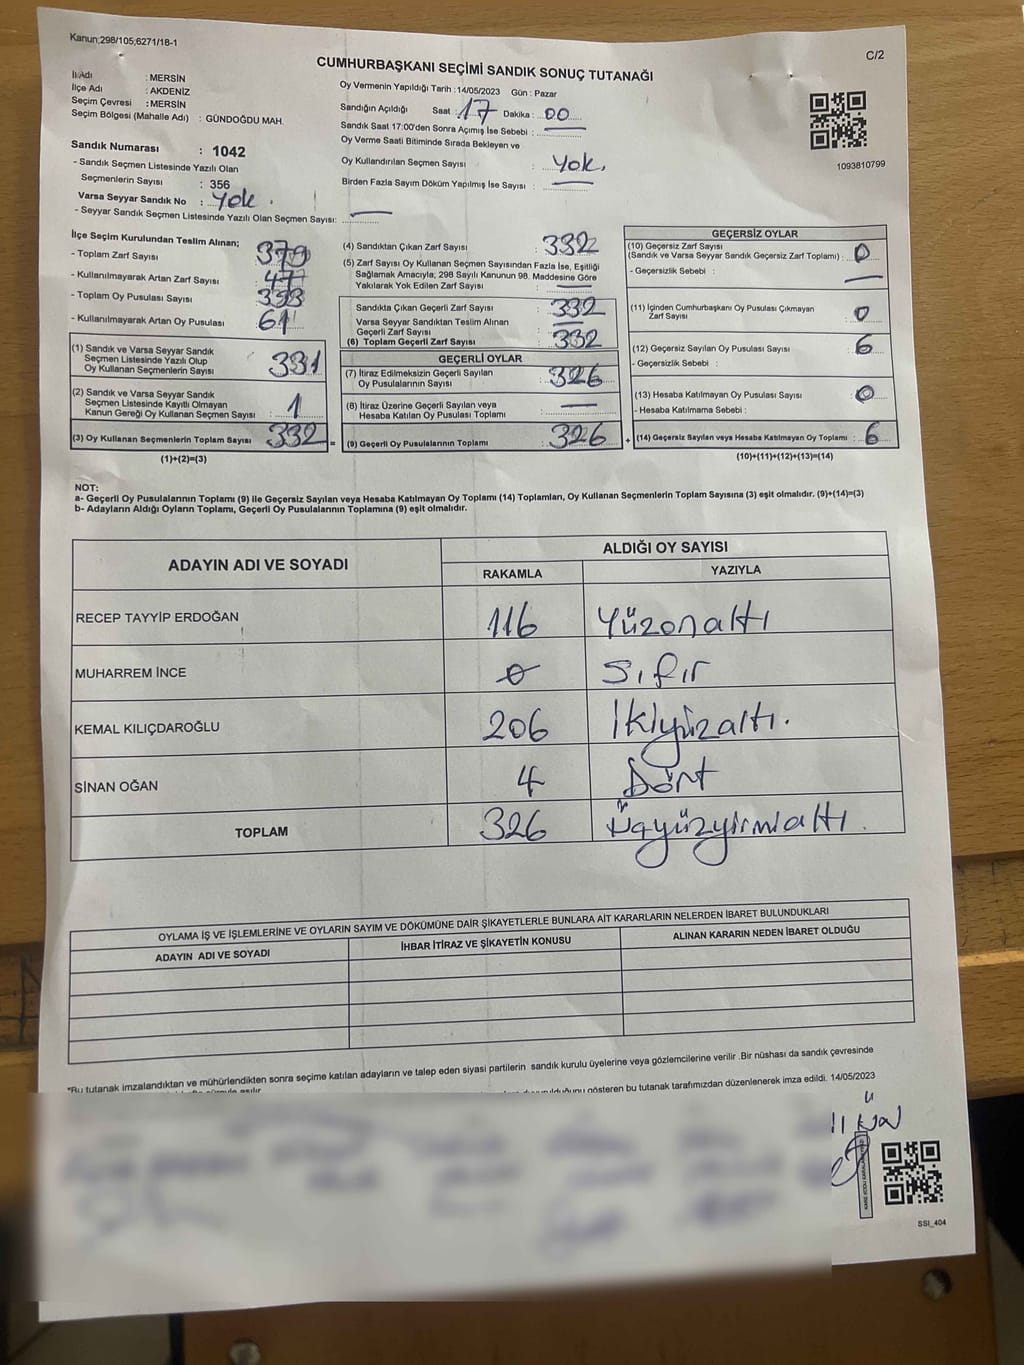 Kanun;298/105;6271/18-1
C/2
CUMHURBAŞKANI SEÇİMİ SANDIK SONUÇ TUTANAĞI
İl Adı : MERSİN
İlçe Adı : AKDENİZ
Seçim Çevresi : MERSİN
Seçim Bölgesi (Mahalle Adı) : GÜNDOĞDU MAH.
Oy Vermenin Yapıldığı Tarih : 14/05/2023 Gün : Pazar
Sandığın Açıldığı Saat 17 Dakika : 00
Sandık Saat 17:00'den Sonra Açımış İse Sebebi :
Oy Verme Saati Bitiminde Sırada Bekleyen ve
Oy Kullandırılan Seçmen Sayısı : Yok.
Birden Fazla Sayım Döküm Yapılmış İse Sayısı :
1093810799
Sandık Numarası : 1042
- Sandık Seçmen Listesinde Yazılı Olan
Seçmenlerin Sayısı : 356
Varsa Seyyar Sandık No : Yok.
- Seyyar Sandık Seçmen Listesinde Yazılı Olan Seçmen Sayısı:
İlçe Seçim Kurulundan Teslim Alınan;
- Toplam Zarf Sayısı 379
- Kullanılmayarak Artan Zarf Sayısı 47
- Toplam Oy Pusulası Sayısı
- Kullanılmayarak Artan Oy Pusulası 61
(1) Sandık ve Varsa Seyyar Sandık
Seçmen Listesinde Yazılı Olup
Oy Kullanan Seçmenlerin Sayısı : 331
(2) Sandık ve Varsa Seyyar Sandık
Seçmen Listesinde Kayıtlı Olmayan
Kanun Gereği Oy Kullanan Seçmen Sayısı : 1
(3) Oy Kullanan Seçmenlerin Toplam Sayısı 332 =
(1)+(2)=(3)
(4) Sandıktan Çıkan Zarf Sayısı : 332
(5) Zarf Sayısı Oy Kullanan Seçmen Sayısından Fazla İse, Eşitliği
Sağlamak Amacıyla; 298 Sayılı Kanunun 98. Maddesine Göre
Yakılarak Yok Edilen Zarf Sayısı :
Sandıkta Çıkan Geçerli Zarf Sayısı : 332
Varsa Seyyar Sandıktan Teslim Alınan
Geçerli Zarf Sayısı :
(6) Toplam Geçerli Zarf Sayısı : 332
GEÇERLİ OYLAR
(7) İtiraz Edilmeksizin Geçerli Sayılan
Oy Pusulalarının Sayısı : 326
(8) İtiraz Üzerine Geçerli Sayılan veya
Hesaba Katılan Oy Pusulası Toplamı :
(9) Geçerli Oy Pusulalarının Toplamı : 326 +
GEÇERSİZ OYLAR
(10) Geçersiz Zarf Sayısı
(Sandık ve Varsa Seyyar Sandık Geçersiz Zarf Toplamı) : 0
- Geçersizlik Sebebi :
(11) İçinden Cumhurbaşkanı Oy Pusulası Çıkmayan
Zarf Sayısı : 0
(12) Geçersiz Sayılan Oy Pusulası Sayısı : 6
- Geçersizlik Sebebi :
(13) Hesaba Katılmayan Oy Pusulası Sayısı : 0
- Hesaba Katılmama Sebebi :
(14) Geçersiz Sayılan veya Hesaba Katılmayan Oy Toplamı : 6
(10)+(11)+(12)+(13)=(14)
NOT:
a- Geçerli Oy Pusulalarının Toplamı (9) ile Geçersiz Sayılan veya Hesaba Katılmayan Oy Toplamı (14) Toplamları, Oy Kullanan Seçmenlerin Toplam Sayısına (3) eşit olmalıdır. (9)+(14)=(3)
b- Adayların Aldığı Oyların Toplamı, Geçerli Oy Pusulalarının Toplamına (9) eşit olmalıdır.
ADAYIN ADI VE SOYADI
ALDIĞI OY SAYISI
RAKAMLA YAZIYLA
RECEP TAYYİP ERDOĞAN 116 Yüzonaltı
MUHARREM İNCE 0 Sıfır
KEMAL KILIÇDAROĞLU 206 İkiyüzaltı.
SİNAN OĞAN 4 Dört
TOPLAM 326 Üçyüzyirmialtı.
OYLAMA İŞ VE İŞLEMLERİNE VE OYLARIN SAYIM VE DÖKÜMÜNE DAİR ŞİKAYETLERLE BUNLARA AİT KARARLARIN NELERDEN İBARET BULUNDUKLARI
ADAYIN ADI VE SOYADI İHBAR İTİRAZ VE ŞİKAYETİN KONUSU ALINAN KARARIN NEDEN İBARET OLDUĞU
*Bu tutanak imzalandıktan ve mühürlendikten sonra seçime katılan adayların ve talep eden siyasi partilerin sandık kurulu üyelerine veya gözlemcilerine verilir .Bir nüshası da sandık çevresinde
gösteren bu tutanak tarafımızdan düzenlenerek imza edildi. 14/05/2023
SSI_404